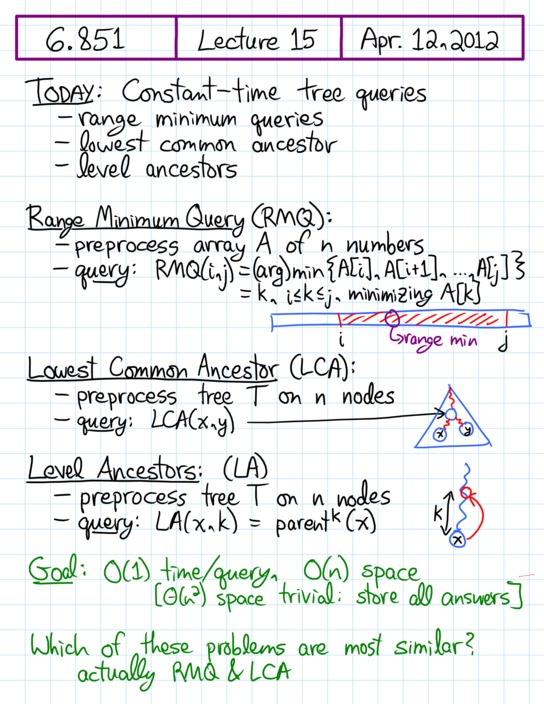 6.851 Lecture 15 Apr. 12, 2012
TODAY: Constant-time tree queries
- range minimum queries
- lowest common ancestor
- level ancestors
Range Minimum Query (RMQ):
- preprocess array A of n numbers
- query: RMQ(i,j) = (arg)min{A[i], A[i+1], ..., A[j]}
= k, i≤k≤j, minimizing A[k]
i range min j
Lowest Common Ancestor (LCA):
- preprocess tree T on n nodes
- query: LCA(x,y)
x y
Level Ancestors: (LA)
- preprocess tree T on n nodes
- query: LA(x,k) = parentᵏ(x)
k
x
Goal: O(1) time/query, O(n) space
[Θ(n²) space trivial: store all answers]
Which of these problems are most similar?
actually RMQ & LCA